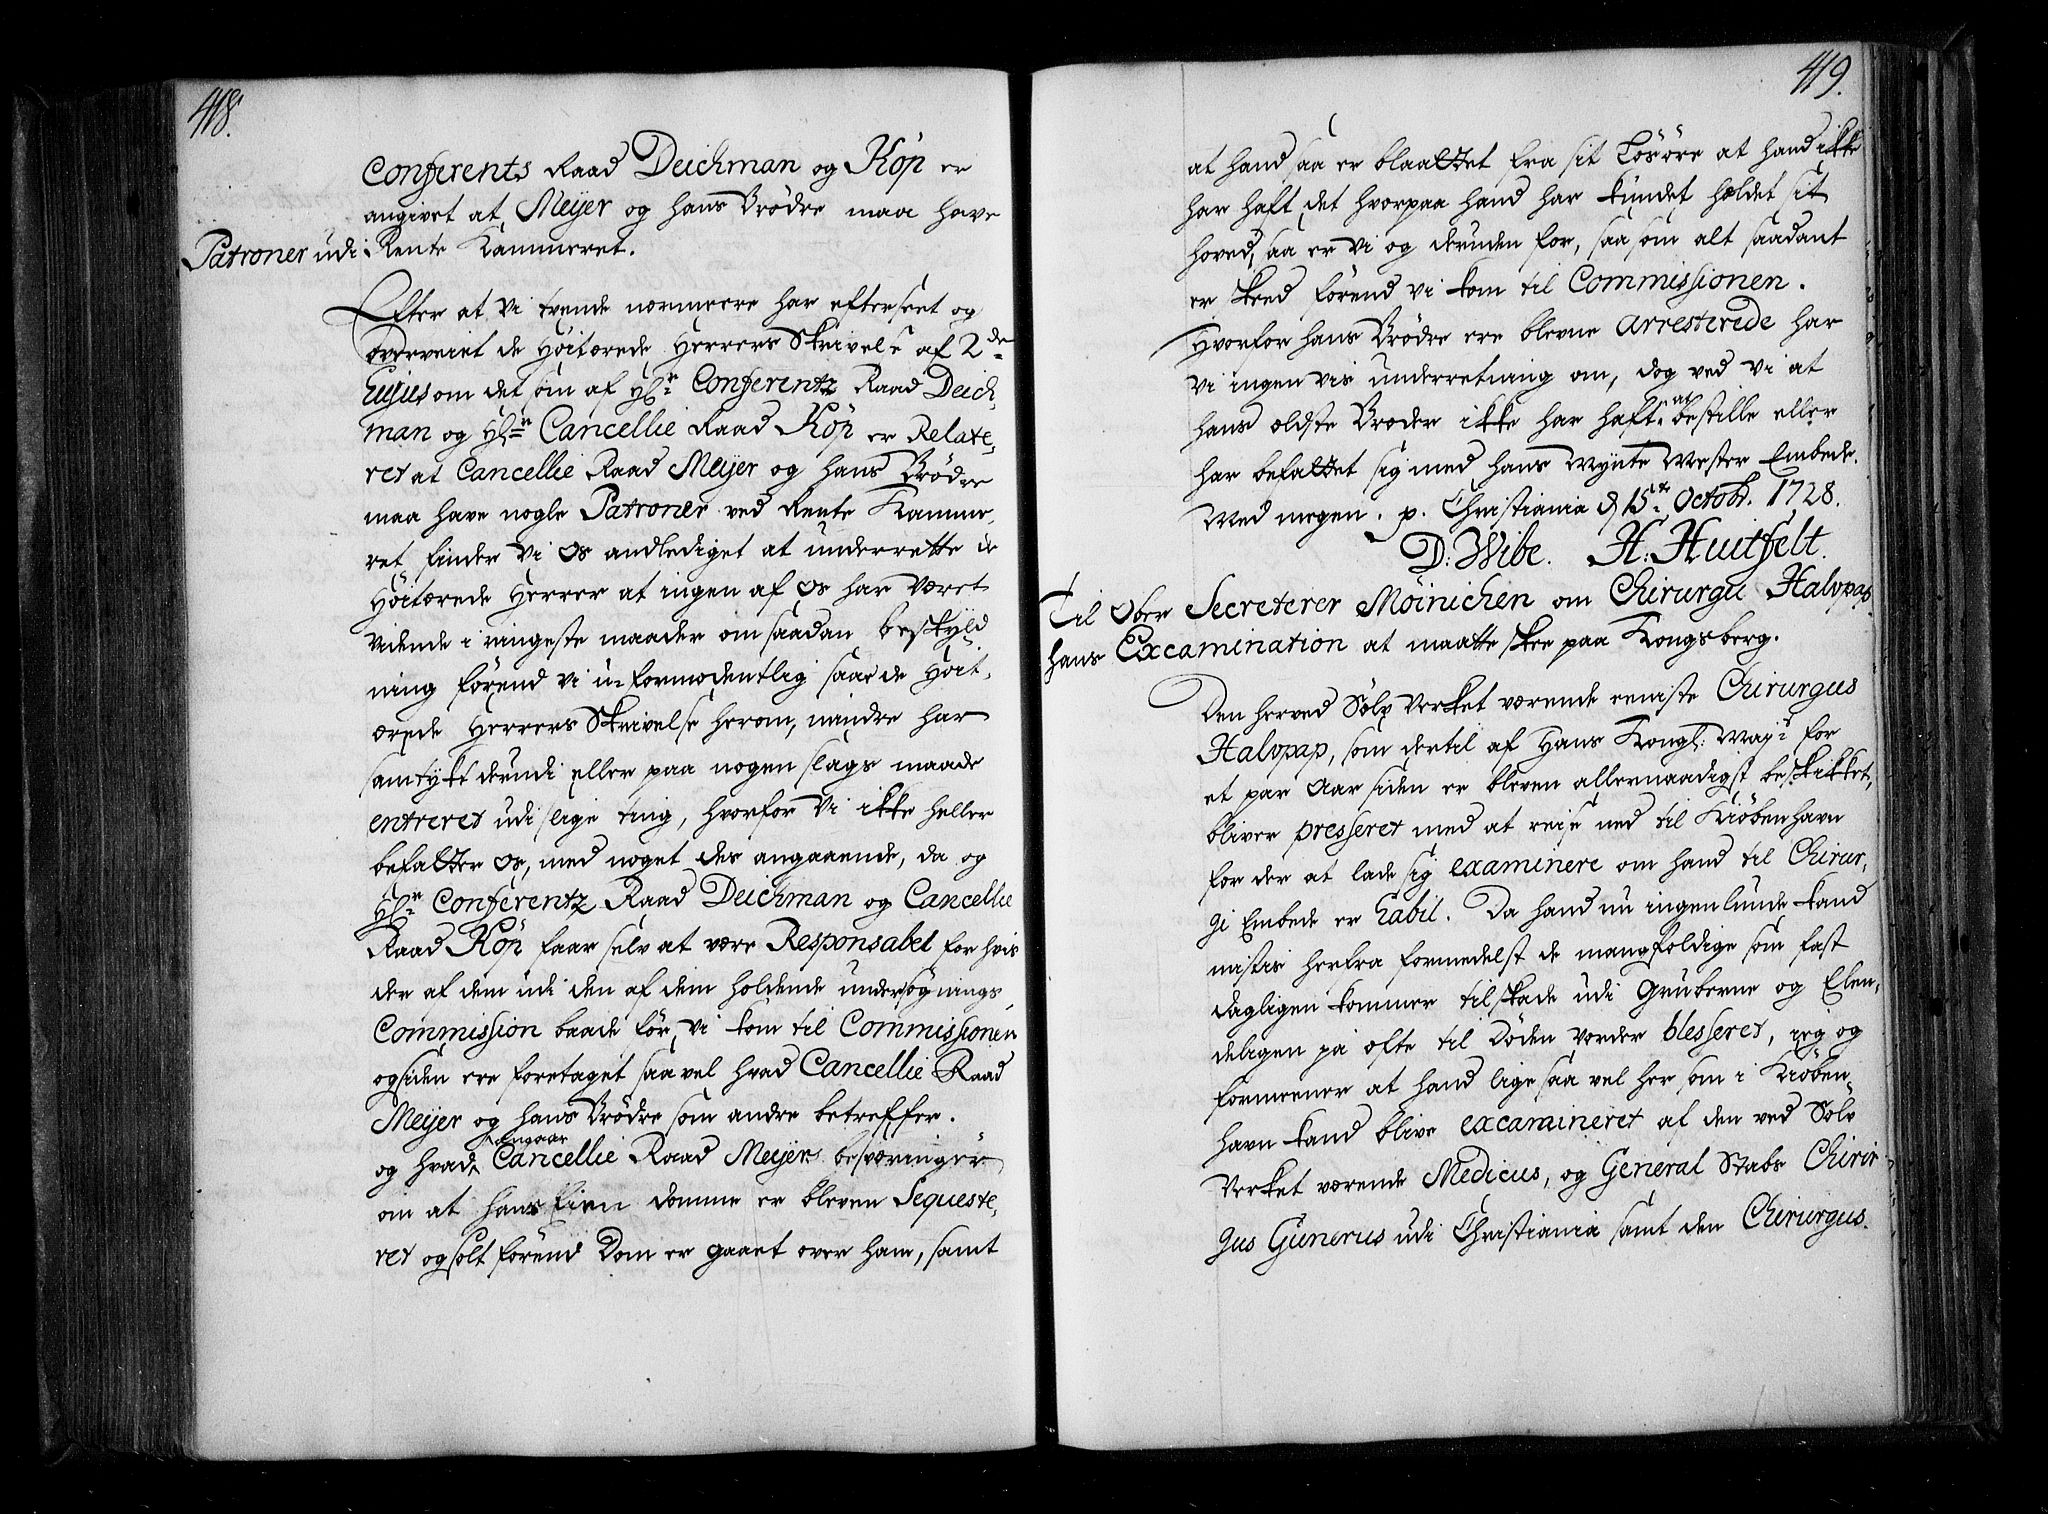 418.
Conferents Raad Deichman og Röp er
angivet at Meyer og hans Brödre maa have
Patroner udi Rente Kammeret.
Efter at vi tvende nærmeere har efterseet og
overveiet de Höitærede Herrers Skrivelse af 2de
hujus om det som af Hr. Conferentz Raad Deich,
man og Hr. Cancellie Raad Röp er Relate,
ret at Cancellie Raad Meyer og hans Brödre
maa have nogle Patroner ved Rente Kamme,
ret, finder vi os andlediget at underrette de
Höitærede Herrer at ingen af os har været
vidende i ringeste maader om saadan beskyld
ning förend vi u-formodentlig saae de Höit,
ærede Herrers Skrivelse herom, mindre har
samtykt derudi eller paa nogen slags maade
entreret udi slige ting, hvorfor vi ikke heller
befatter os, med noget des angaaende, da og
Hr. Conferentz Raad Deichman og Cancellie
Raad Röp faar selv at være Responsabel for hvis
der af dem udi den af dem holdende undersögnings
Commission baade för vi kom til Commissionen
og siden ere foretaget saavel hvad Cancellie Raad
Meyer og hans Brödre som andre betreffer.
og hvad angaar Cancellie Raad Meyers besværinger
om at hans Eien domme er bleven Sequeste,
ret og solt förend Dom er gaaet over ham, samt
419.
at hand saa er blaattet fra sit Lösöre at hand ikke
har haft det hvorpaa hand har kundet holdet sit
hoved, saa er vi og deruden for, saasom alt saadant
er skeed förend vi kom til Commissionen.
Hvorfor hans Brödre ere blevne arresterede har
vi ingen vis underretning om, dog ved vi at
hans ældste Broder ikke har haft at bestille eller
har befattet sig med hans Mynte Mester Embede.
Med megen. p. Christiania d 15te Octobr. 1728.
D: Wibe. H: Huitfelt.
Til Ober Secreterer Möinichen om Chirurgii Halvpap
hans Excamination at maatte skee paa Kongsberg.
Den herved Sölv Verket værende eeniste Chirurgus
Halvpap, som dertil af Hans Kongl: May:t for
et par Aar siden er bleven allernaadigst beskikket,
bliver presseret med at reise ned til Kiöbenhavn
for der at lade sig examinere om hand til Chirur,
gi Embede er habil. Da hand nu ingenlunde kand
mistis herfra formedelst de mangfoldige som fast
dagligen kommer til skade udi Gruberne og Elen,
deligen ja ofte til Döden vorder blesseret, ieg og
formeener at hand lige saa vel her som i Kiöben
havn kand blive excamineret af den ved Sölv
Verket værende Medicus, og General Stabs Chirir
gus Gunerus udi Christiania samt den Chirurgus.